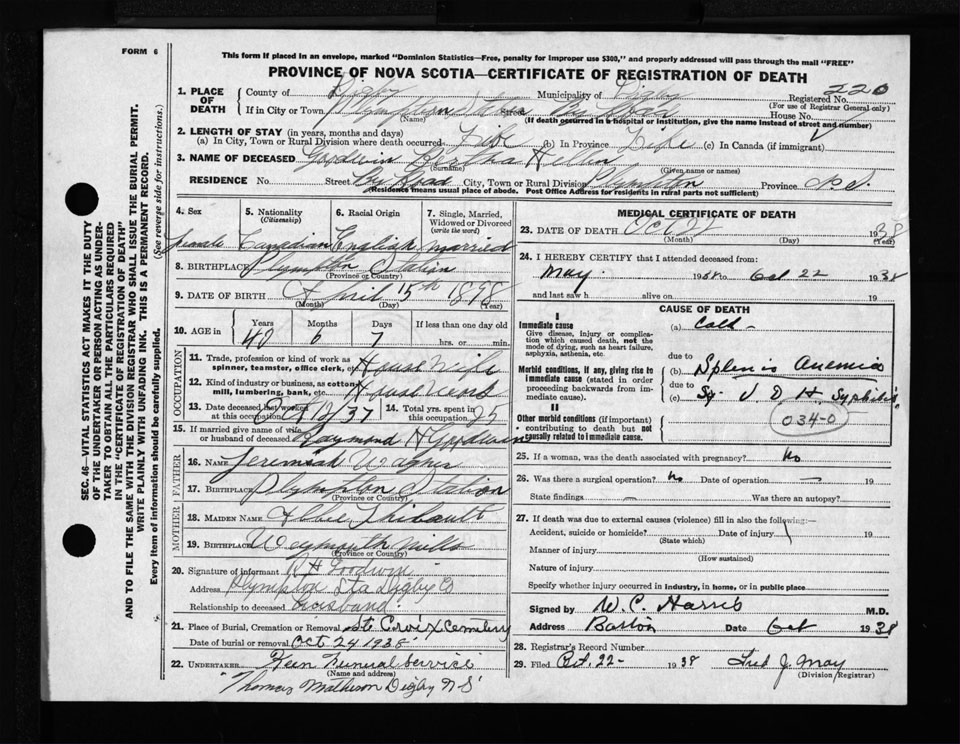 FORM 6
This form if placed in an envelope, marked "Dominion Statistics—Free, penalty for improper use $300," and properly addressed will pass through the mail "FREE"
PROVINCE OF NOVA SCOTIA—CERTIFICATE OF REGISTRATION OF DEATH
1. PLACE OF DEATH
County of Digby Municipality of Digby Registered No. 220
(For use of Registrar General only)
If in City or Town Plympton Station Street By Road House No.
(Name) (If death occurred in a hospital or institution, give the name instead of street and number)
2. LENGTH OF STAY (in years, months and days)
(a) In City, Town or Rural Division where death occurred Life (b) In Province Life (c) In Canada (if immigrant)
3. NAME OF DECEASED Goodwin Bertha Hellen
(Surname) (Given name or names)
RESIDENCE No. Street By Road City, Town or Rural Division Plympton Province N.S.
(Residence means usual place of abode. Post Office Address for residents in rural parts not sufficient)
SEC. 46—VITAL STATISTICS ACT MAKES IT THE DUTY
OF THE UNDERTAKER OR PERSON ACTING AS UNDER-
TAKER TO OBTAIN ALL THE PARTICULARS REQUIRED
IN THE "CERTIFICATE OF REGISTRATION OF DEATH"
AND TO FILE THE SAME WITH THE DIVISION REGISTRAR WHO SHALL ISSUE THE BURIAL PERMIT.
WRITE PLAINLY WITH UNFADING INK. THIS IS A PERMANENT RECORD.
Every item of information should be carefully supplied. (See reverse side for instructions.)
4. Sex 5. Nationality (Citizenship) 6. Racial Origin 7. Single, Married, Widowed or Divorced (write the word)
Female Canadian English Married
8. BIRTHPLACE Plympton Station
(Province or Country)
9. DATE OF BIRTH April 15th 1898
(Month) (Day) (Year)
10. AGE in Years Months Days If less than one day old
40 6 7 hrs. or min.
OCCUPATION
11. Trade, profession or kind of work as spinner, teamster, office clerk, etc. House Wife
12. Kind of industry or business, as cotton mill, lumbering, bank, etc. House Work
13. Date deceased last worked at this occupation Oct 12/37 14. Total yrs. spent in this occupation 25
15. If married give name of wife or husband of deceased Raymond H Goodwin
FATHER
16. NAME Jeremiah Wagner
17. BIRTHPLACE Plympton Station
(Province or Country)
MOTHER
18. MAIDEN NAME Abbie Thibault
19. BIRTHPLACE Weymouth Mills
(Province or Country)
20. Signature of informant R H Goodwin
Address Plympton Sta Digby Co
Relationship to deceased Husband
21. Place of Burial, Cremation or Removal St Croix Cemetery
Date of burial or removal Oct 24 1938
22. UNDERTAKER Kein Funeral Service
(Name and address)
Thomas Matheson Digby N S
MEDICAL CERTIFICATE OF DEATH
23. DATE OF DEATH Oct 22 1938
(Month) (Day) (Year)
24. I HEREBY CERTIFY that I attended deceased from:
May 1938 to Oct 22 1938
and last saw h alive on 19
CAUSE OF DEATH
I
Immediate cause
Give disease, injury or complication which caused death, not the mode of dying, such as heart failure, asphyxia, asthenia, etc.
(a) Cold
due to
Morbid conditions, if any, giving rise to immediate cause (stated in order proceeding backwards from immediate cause).
(b) Splenic Anemia
due to
(c) Syphilis
034-0
II
Other morbid conditions (if important) contributing to death but not causally related to immediate cause.
25. If a woman, was the death associated with pregnancy? No
26. Was there a surgical operation? No Date of operation —
State findings — Was there an autopsy?
27. If death was due to external causes (violence) fill in also the following:—
Accident, suicide or homicide? Date of injury 19
(State which)
Manner of injury
(How sustained)
Nature of injury
Specify whether injury occurred in industry, in home, or in public place
Signed by W. C. Harris M.D.
Address Barton Date Oct 1938
28. Registrar's Record Number
29. Filed Oct. 22- 1938 Fred J. May
(Division Registrar)